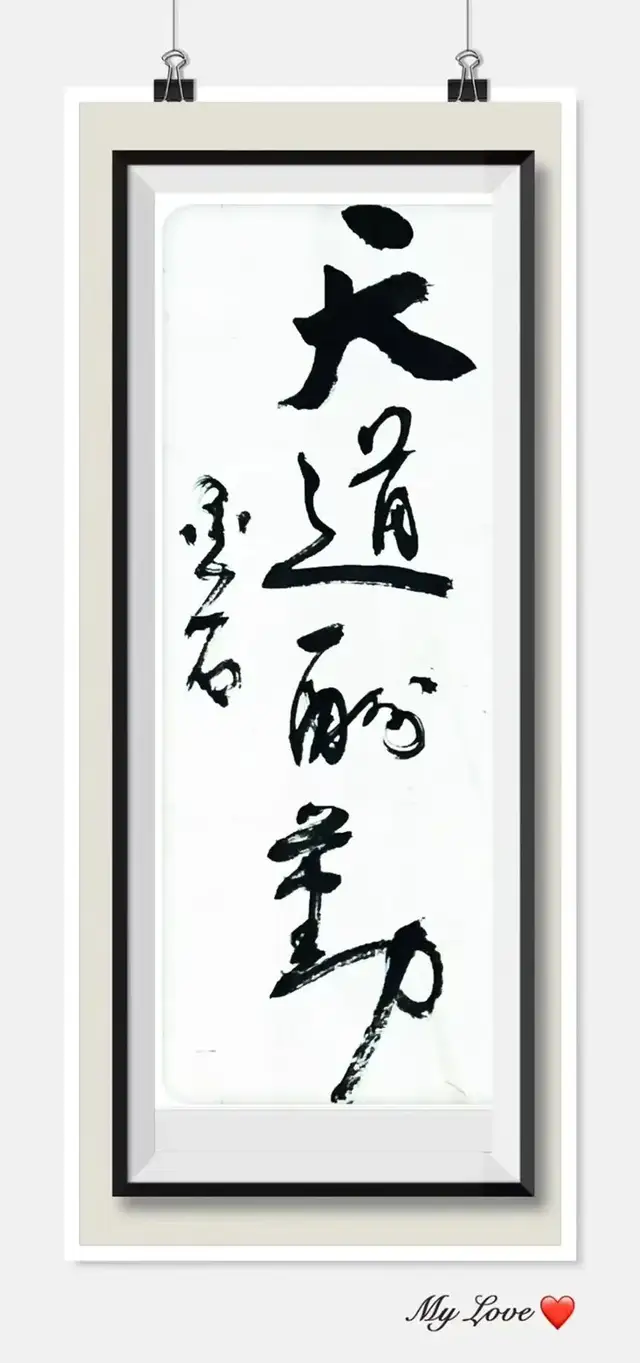 天道酬勤
墨石
My Love❤️